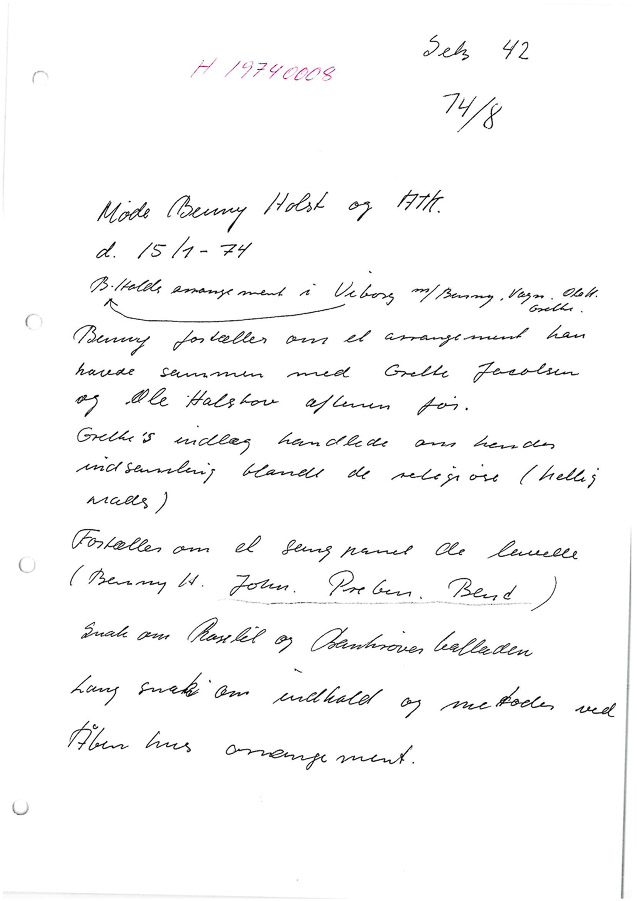 H 19740008
Sek 42
74/8
Møde Benny Holst og ATK.
d. 15/1-74
B. Holds arrangement i Viborg m/ Benny, Vagn, Ole H.
Grethe.
Benny fortæller om et arrangement han
havde sammen med Grethe Jacobsen
og Ole Halskov aftenen før.
Grethe's indlæg handlede om hendes
indsamling blandt de religiøse (hellig
Fortæller om et sang panel de lavede
(Benny H. John. Preben. Bent)
Snak om Roselil og Bankrøver balladen
Lang snak om indhold og metoder ved
Åben hus arrangement.